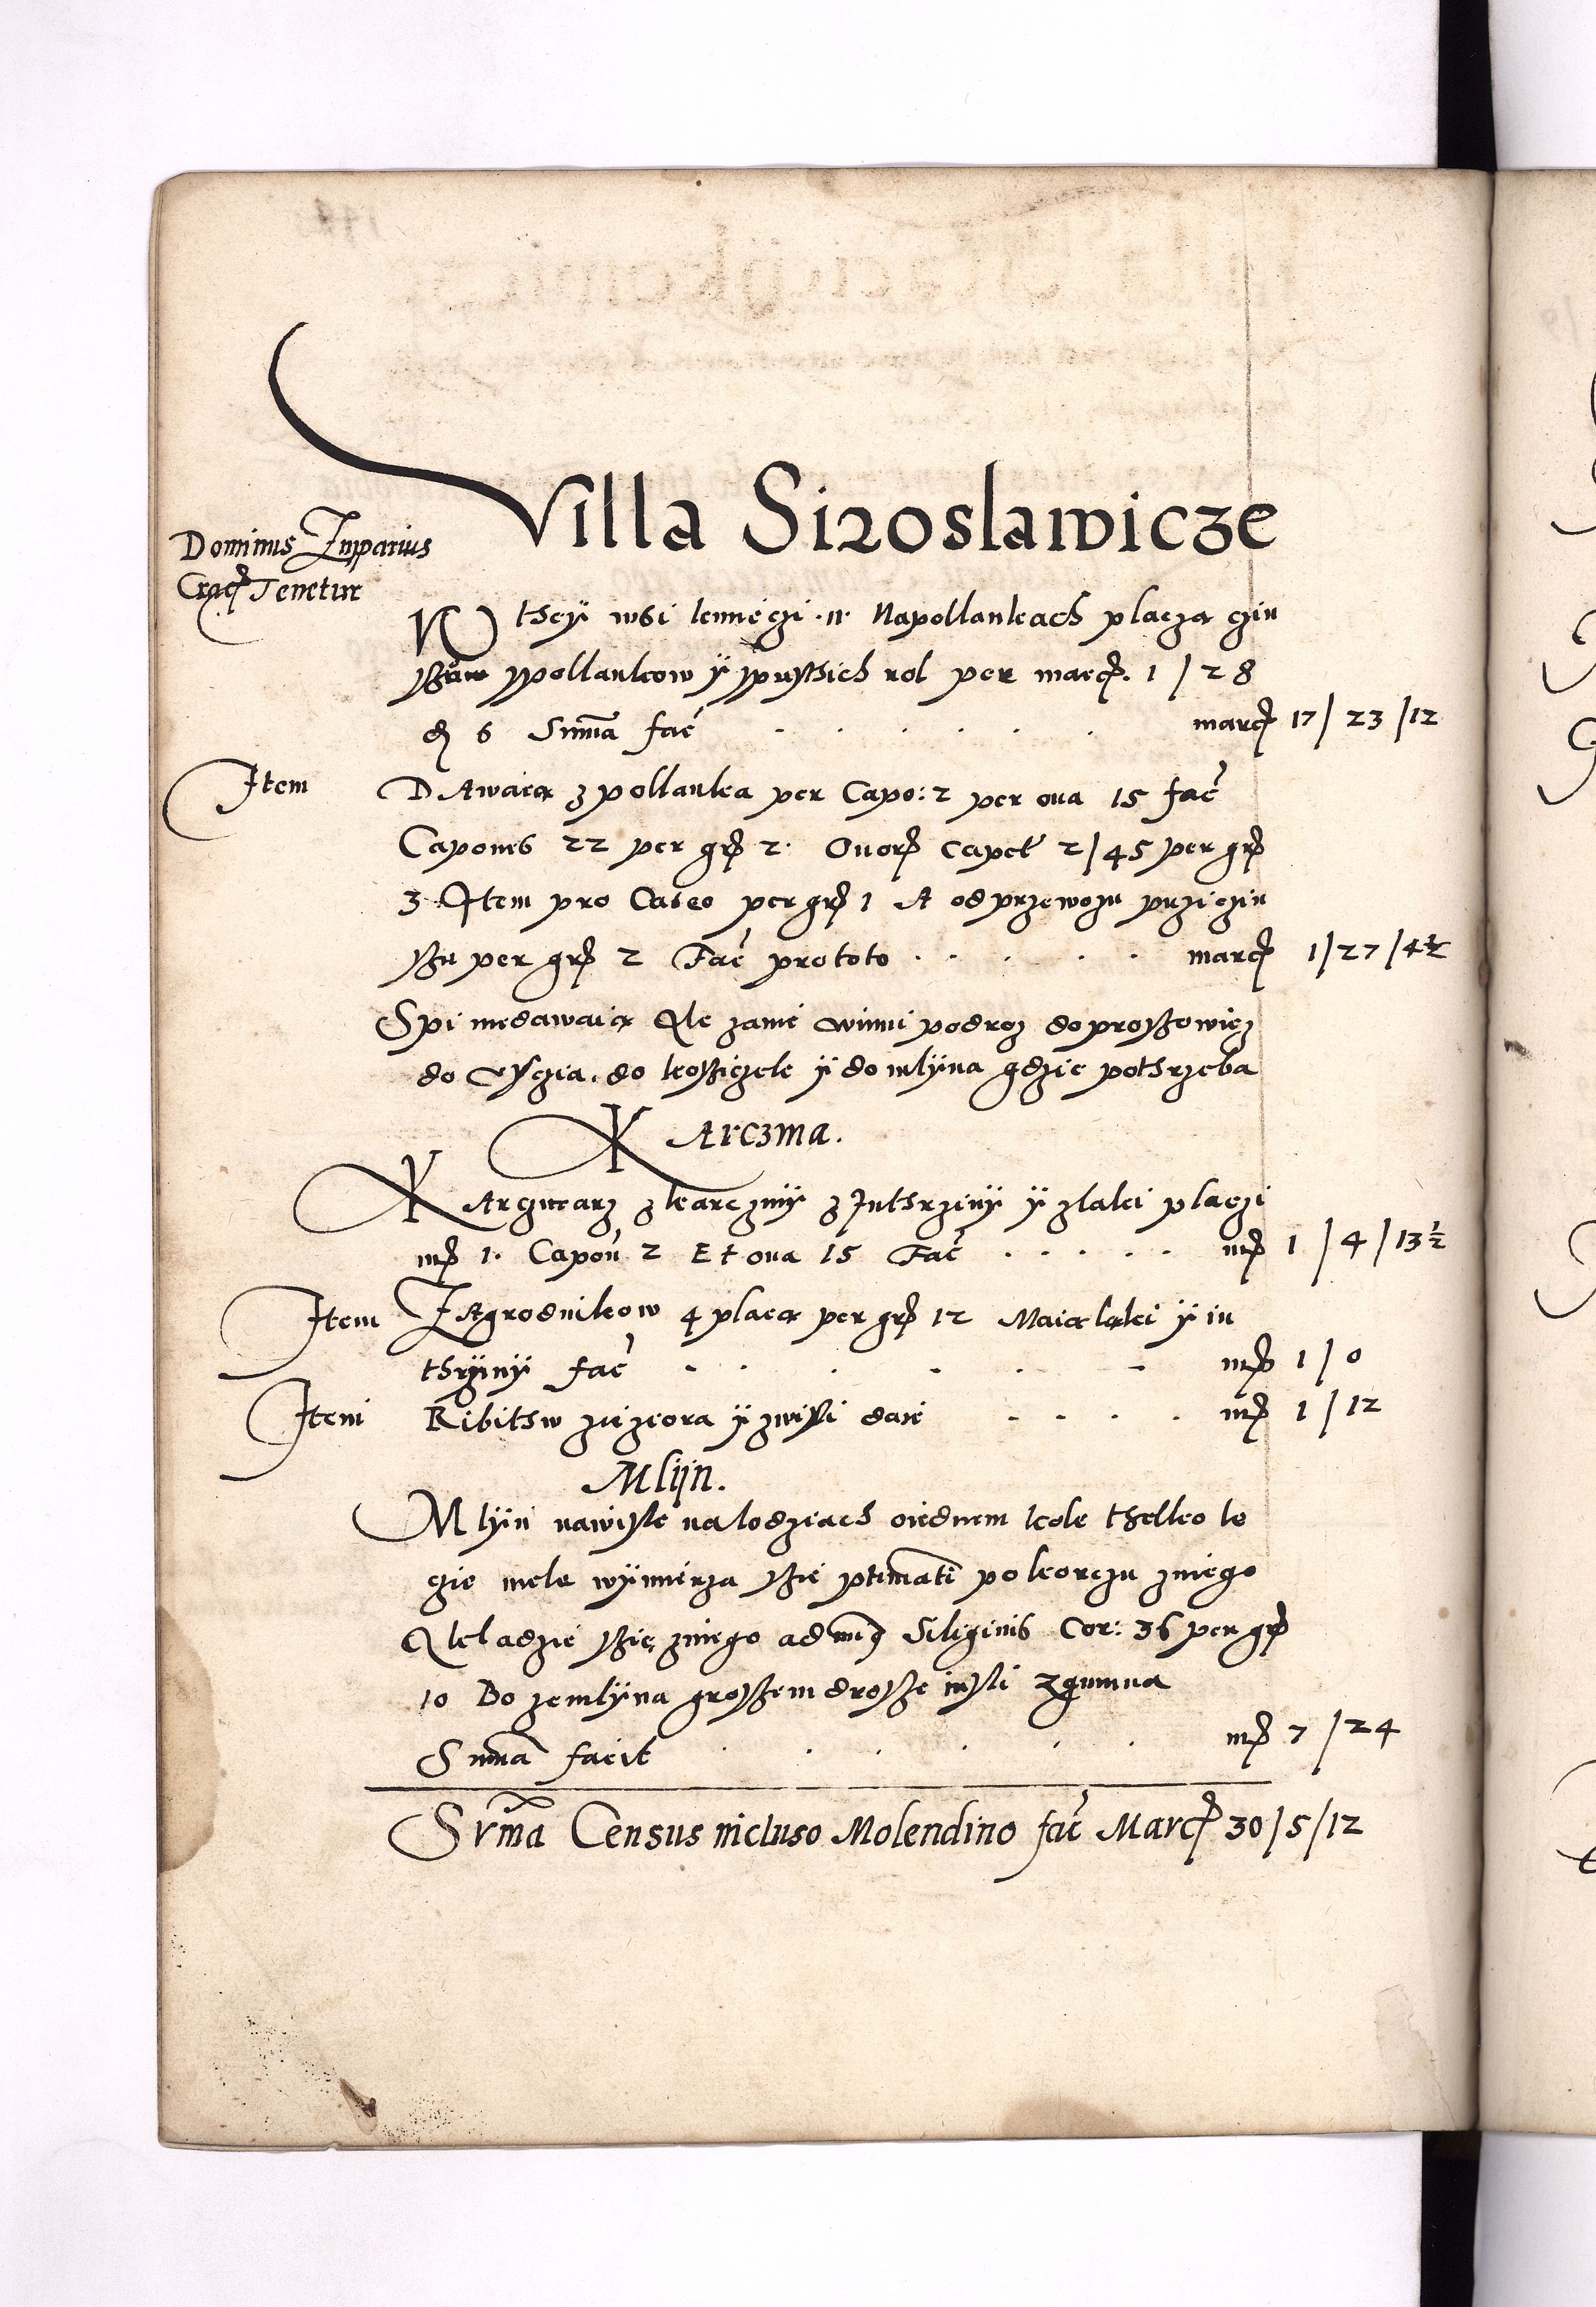 Villa Siroslawicze
Dominus Zupparius
Cracꝭ Tenetur
W they wsi kmieczi 11 Napollankach placza czin
sszow ypollankow y ypusthich rol per marcꝭ 1 / 28
₰ 6 Summa fac̃ . . . . . . marcꝭ 17 / 23 / 12
Item DAwaia z pollanka per Capo: 2 per oua 15 fac̃
Capones 22 per grꝭ 2. Ouorꝭ capet 2/45 per grꝭ
3 Item pro Caseo per grꝭ 1 A odprzewozu przi czin
szu per grꝭ 2 Fac̃ prototo . . . . . marcꝭ 1/27/4½
Spi niedawaia Ale zamie winni podroz doproszowicz
do Vsczia, do koszyczek y domlyna gdzie pothrzeba
KArczma.
KArczmarz z karczmy z Juthrzyny y zlaki placzi
mꝭ 1. Capon̄ 2 Et oua 15 Fac̃ . . . . . mꝭ 1 / 4 / 13½
Item ZAgrodnikow 4 placa per grꝭ 12 Maia laki y iu
thrzyny fac̃ . . . . . . mꝭ 1 / 0
Item Ribithw zieziora y zwisli daie . . . . mꝭ 1 / 12
Mlijn.
Mlyn nawisle nalodziach oiednem kole thelko ko
gie mele wymierza sszie ptimatē po korczu zniego
Akladzie sszie zniego ad Siliginis Cor: 36 per grꝭ
10 Bo zemlyna grosszem drosse nisli zgumna
Suma facit . . . . . . mꝭ 7 / 24
Sūma Census incluso Molendino fac̃ Marcꝭ 30/5/12